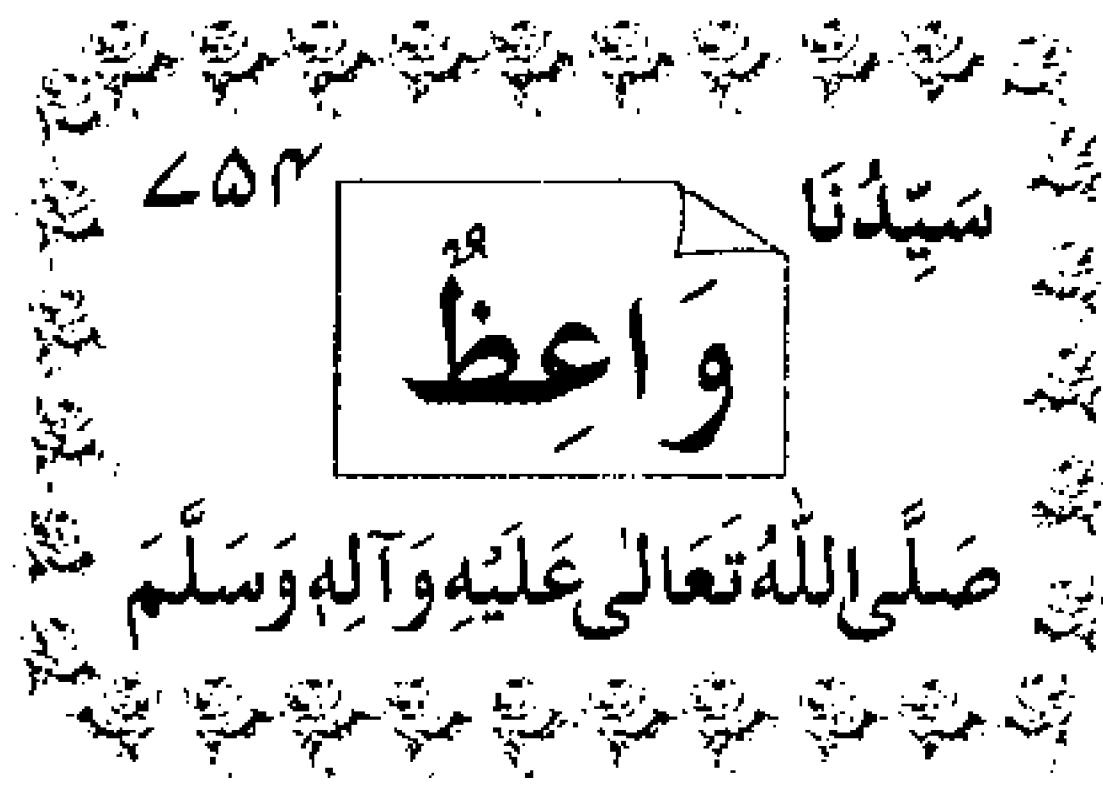 سَيِّدُنَا ۷۵۴
وَاعِظٌ
صَلَّى اللّٰهُ تَعَالٰى عَلَيْهِ وَآلِهٖ وَسَلَّمَ